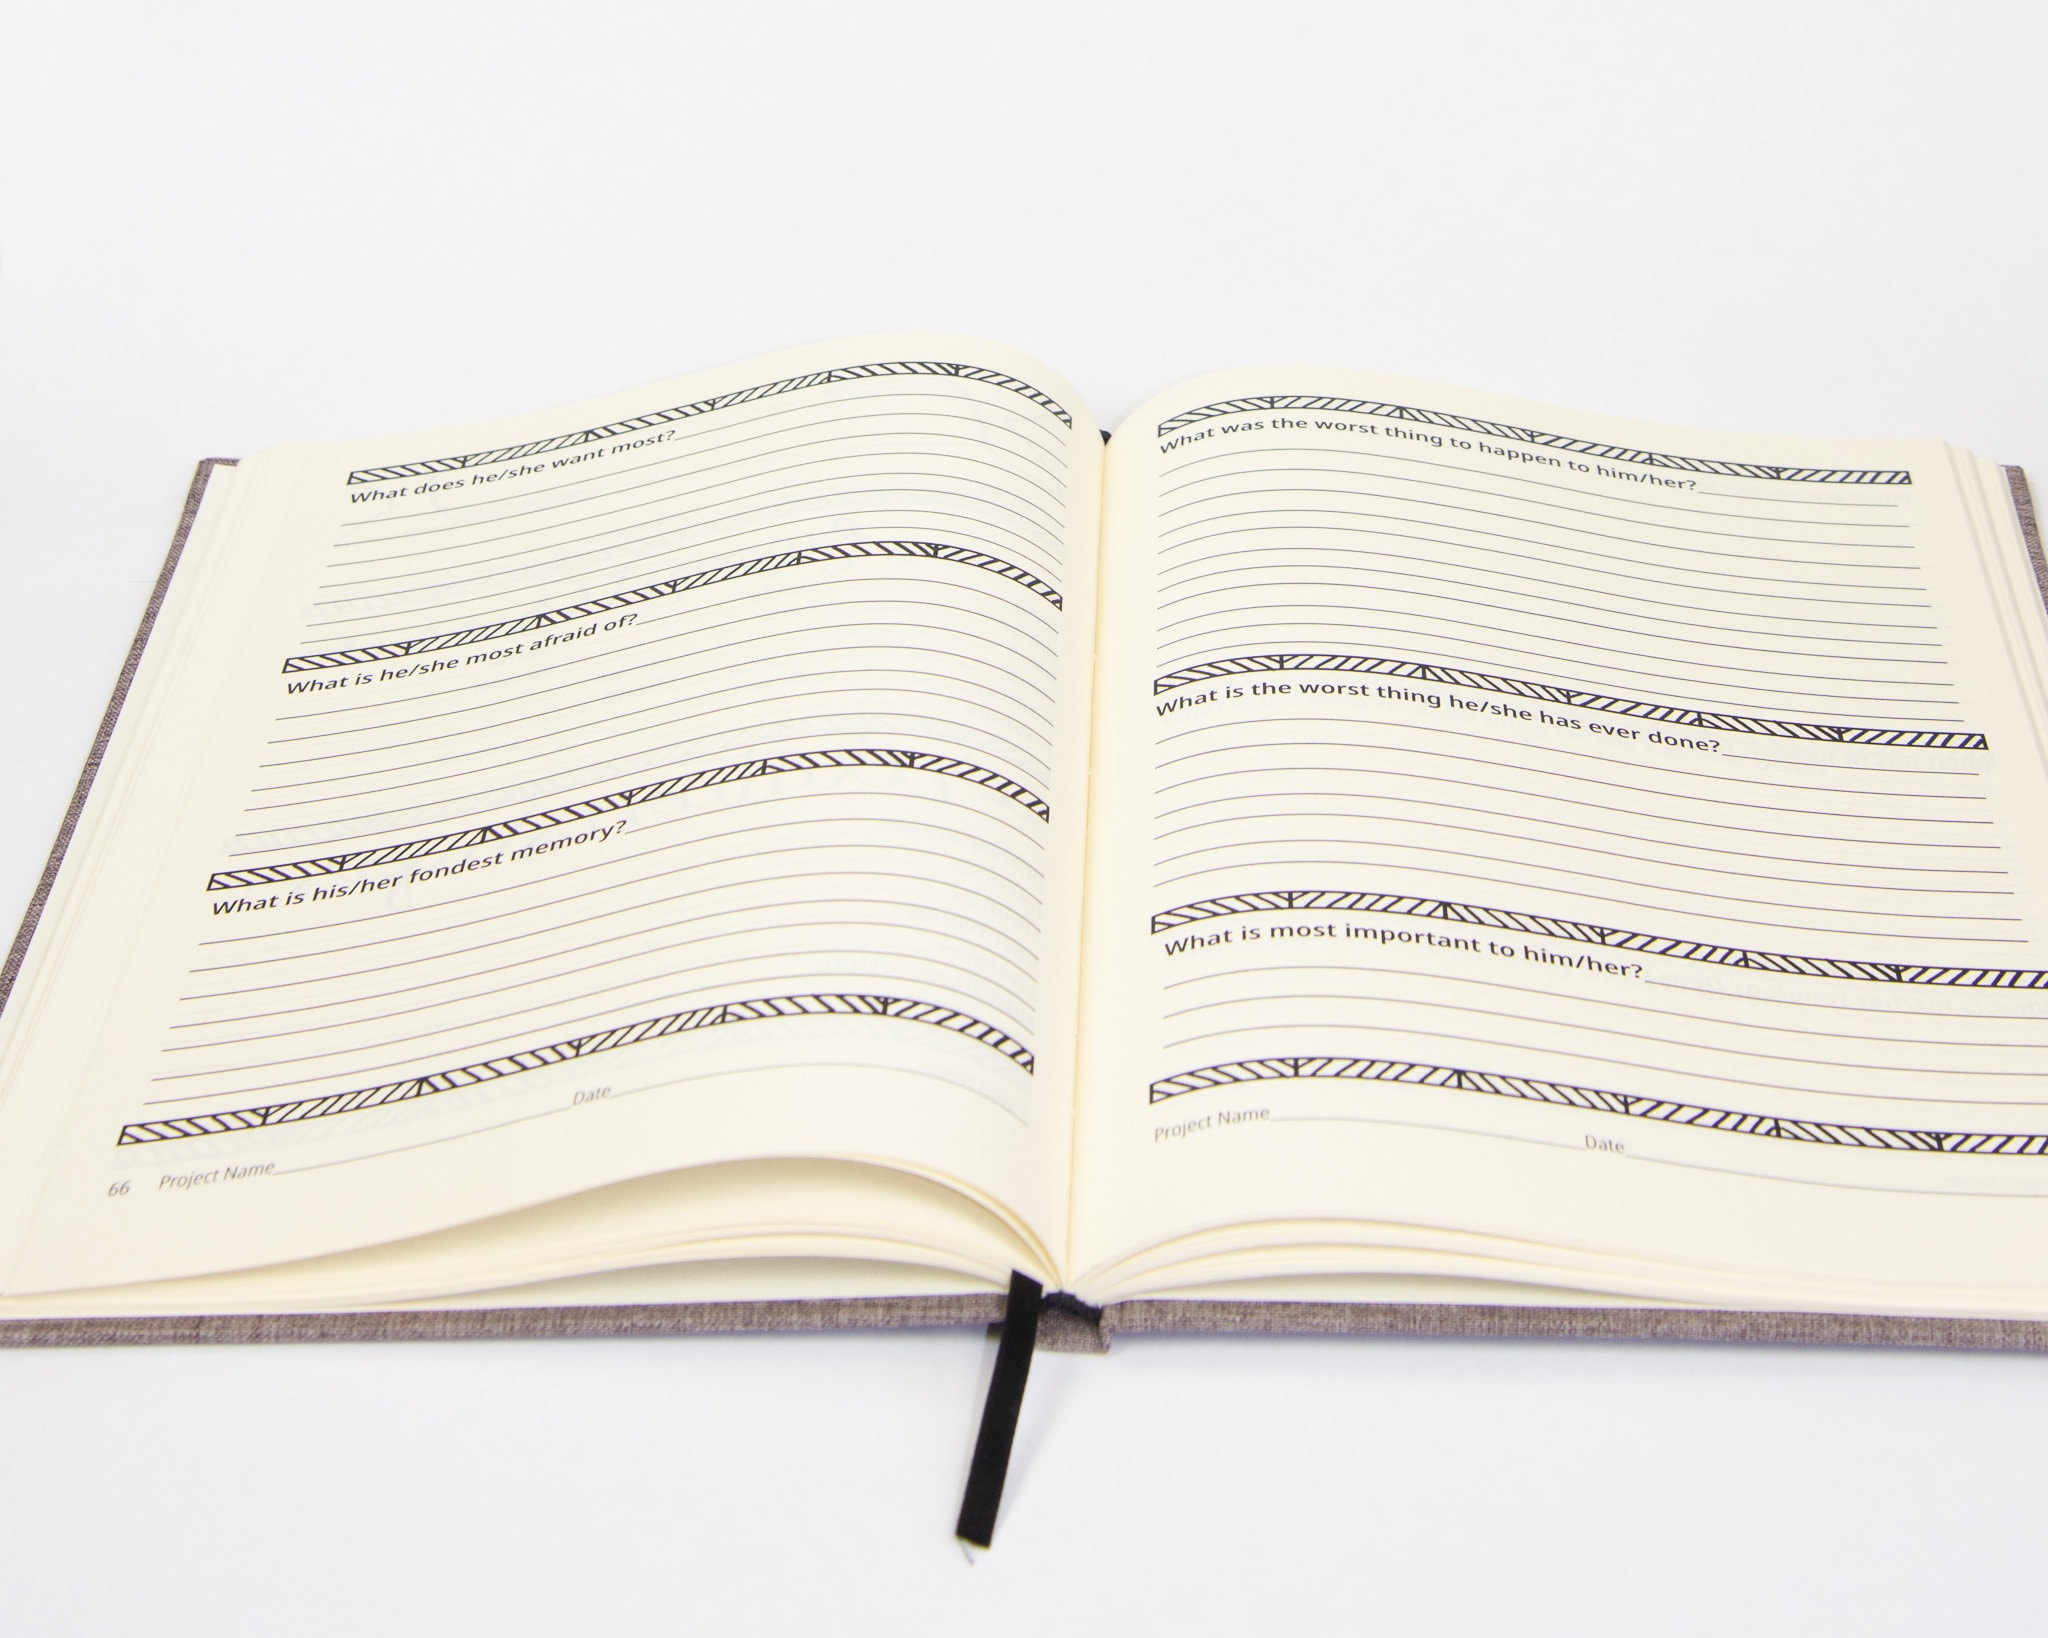 What does he/she want most?
What is he/she most afraid of?
What is his/her fondest memory?
Project Name Date
66
What was the worst thing to happen to him/her?
What is the worst thing he/she has ever done?
What is most important to him/her?
Project Name Date